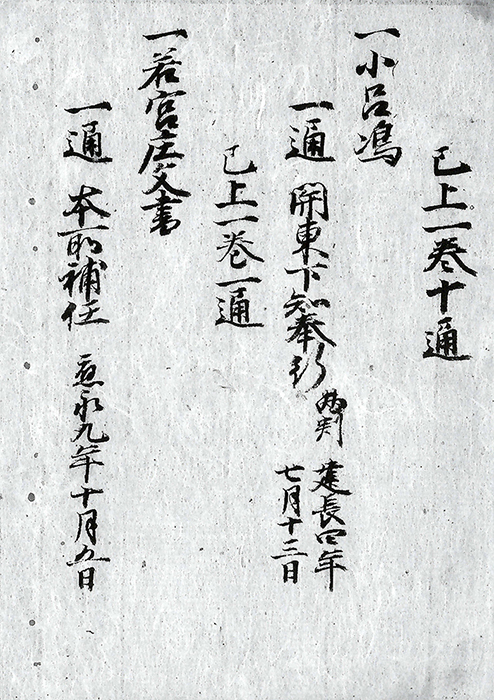 已上一巻十通
一小呂嶋
一通 関東下知奉行 判 建長四年
七月十三日
已上一巻一通
一若宮庄文書
一通 本所補任 應永九年十月五日